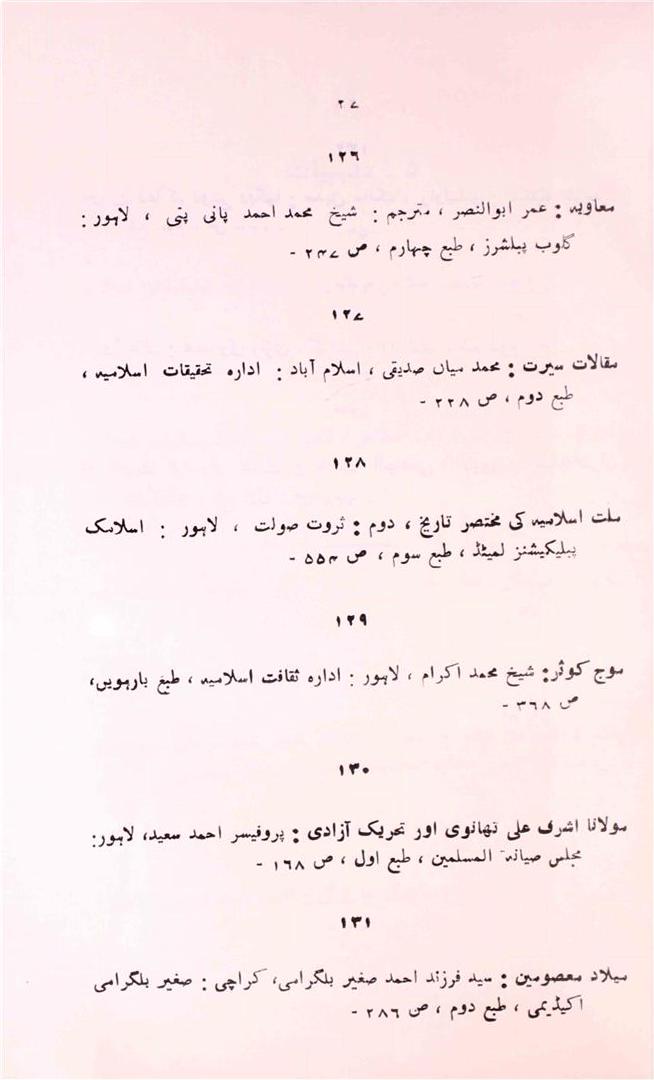 ۲۷
۱۲۶
معاویہ : عمر ابوالنصر ، مترجم : شیخ محمد احمد پانی پتی ، لاہور :
گلوب پبلشرز ، طبع چہارم ، ص ۲۴۷ -
۱۲۷
مقالات سیرت : محمد میاں صدیقی ، اسلام آباد : ادارہ تحقیقات اسلامیہ ،
طبع دوم ، ص ۲۲۸ -
۱۲۸
ملت اسلامیہ کی مختصر تاریخ ، دوم : ثروت صولت ، لاہور : اسلامک
پبلیکیشنز لمیٹڈ ، طبع سوم ، ص ۵۵۴ -
۱۲۹
موج کوثر : شیخ محمد اکرام ، لاہور : ادارہ ثقافت اسلامیہ ، طبع بارہویں،
ص ۳۶۸ -
۱۳۰
مولانا اشرف علی تھانوی اور تحریک آزادی : پروفیسر احمد سعید، لاہور:
مجلس صیانۃ المسلمین ، طبع اول ، ص ۱۶۸ -
۱۳۱
میلاد معصومین : سید فرزند احمد صغیر بلگرامی، کراچی : صغیر بلگرامی
اکیڈیمی ، طبع دوم ، ص ۲۸۶ -